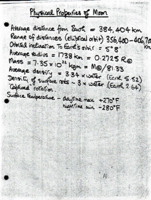 Physical Properties of Moon
Average distance from Earth = 384,404 km
Range of distances (elliptical orbit) 356,400-406,700 km
Orbital inclination to Earth's orbit = 5°8'
Average radius = 1738 km = 0.2725 R⊕
Mass = 7.35 x 10²² kg = M⊕/81.33
Average density = 3.34 x water (Earth 5.52)
Density of surface rocks ~ 3 x water (Earth 2.64)
Captured rotation.
Surface Temperature - daytime max +270°F
nighttime min -280°F